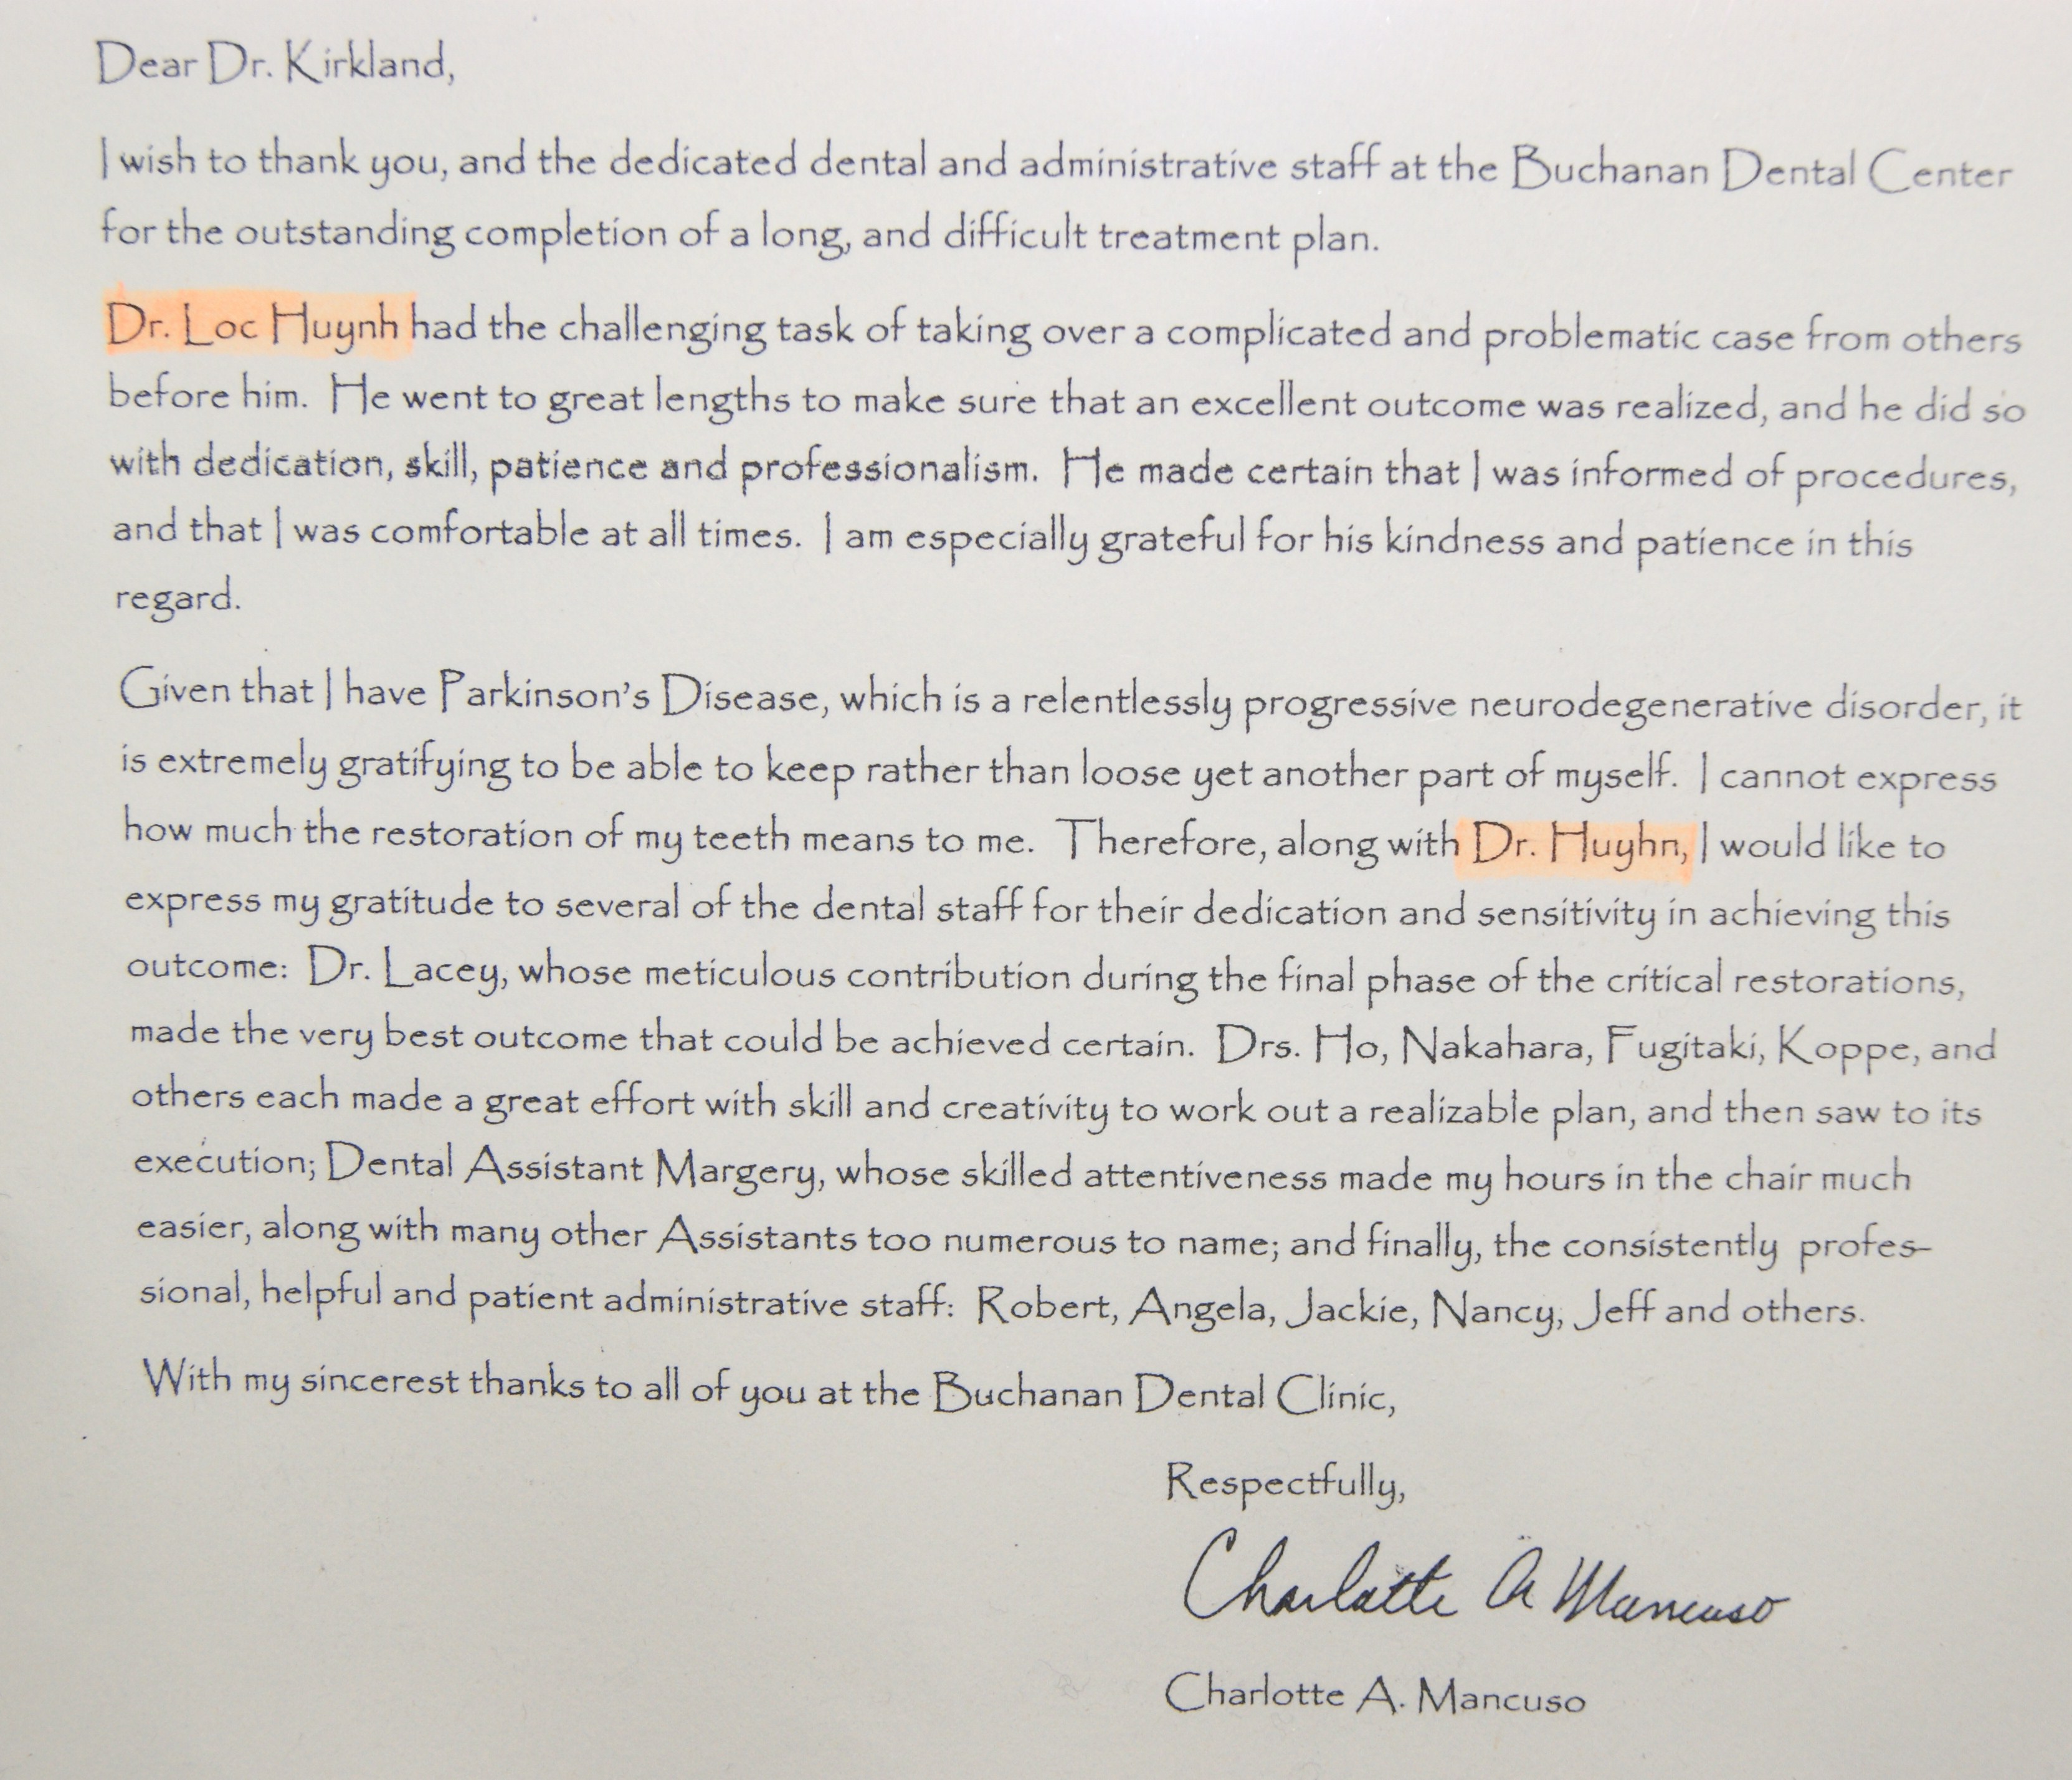 Dear Dr. Kirkland,
I wish to thank you, and the dedicated dental and administrative staff at the Buchanan Dental Center
for the outstanding completion of a long, and difficult treatment plan.
Dr. Loc Huynh had the challenging task of taking over a complicated and problematic case from others
before him.  He went to great lengths to make sure that an excellent outcome was realized, and he did so
with dedication, skill, patience and professionalism.  He made certain that I was informed of procedures,
and that I was comfortable at all times.  I am especially grateful for his kindness and patience in this
regard.
Given that I have Parkinson's Disease, which is a relentlessly progressive neurodegenerative disorder, it
is extremely gratifying to be able to keep rather than loose yet another part of myself.  I cannot express
how much the restoration of my teeth means to me.  Therefore, along with Dr. Huyhn, I would like to
express my gratitude to several of the dental staff for their dedication and sensitivity in achieving this
outcome:  Dr. Lacey, whose meticulous contribution during the final phase of the critical restorations,
made the very best outcome that could be achieved certain.  Drs. Ho, Nakahara, Fugitaki, Koppe, and
others each made a great effort with skill and creativity to work out a realizable plan, and then saw to its
execution; Dental Assistant Margery, whose skilled attentiveness made my hours in the chair much
easier, along with many other Assistants too numerous to name; and finally, the consistently  profes-
sional, helpful and patient administrative staff:  Robert, Angela, Jackie, Nancy, Jeff and others.
With my sincerest thanks to all of you at the Buchanan Dental Clinic,
Respectfully,
Charlotte A Mancuso
Charlotte A. Mancuso